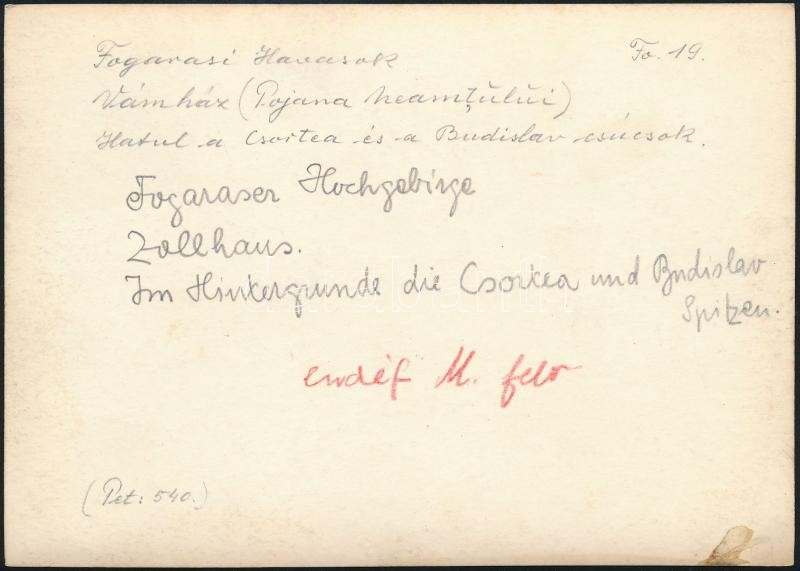 Fogarasi Havasok Fo. 19.
Vámház (Pojana neamţului)
Hatul a Csortea és a Budislav csúcsok.
Fogaraser Hochgebirge
Zollhaus.
Im Hintergrunde die Csortea und Budislav
Spitzen.
M. felv
(Pet: 540.)